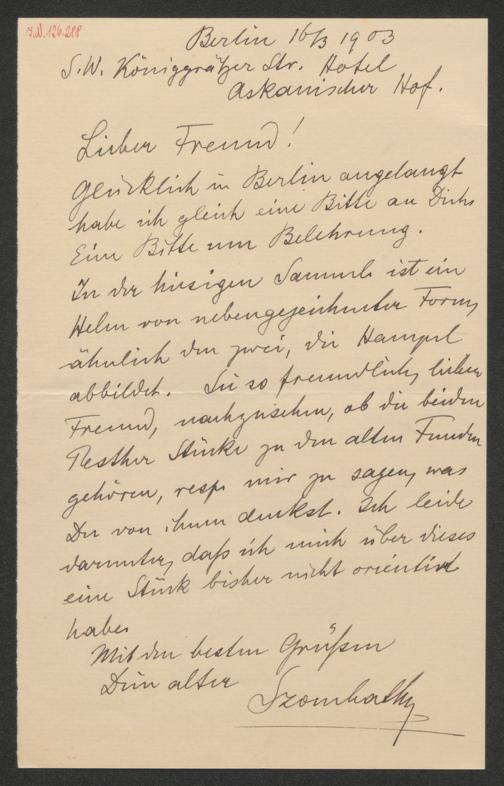 I.N. 126.288
Berlin 16/3 1903
S.W. Königgrätzer Str. Hotel
Askanischer Hof.
Lieber Freund!
Glücklich in Berlin angelangt
habe ich gleich eine Bitte an Dich:
Eine Bitte um Belehrung.
In der hiesigen Samml. ist ein
Helm von nebengezeichneter Form,
ähnlich den zwei, die Hampel
abbildet. Sei so freundlich, lieber
Freund, nachzusehen, ob die beiden
Pesther Stücke zu den alten Funden
gehören, resp. mir zu sagen, was
Du von ihnen denkst. Ich leide
darunter, daß ich mich über dieses
eine Stück bisher nicht orientirt
habe.
Mit den besten Grüßen
Dein alter
Szombathy